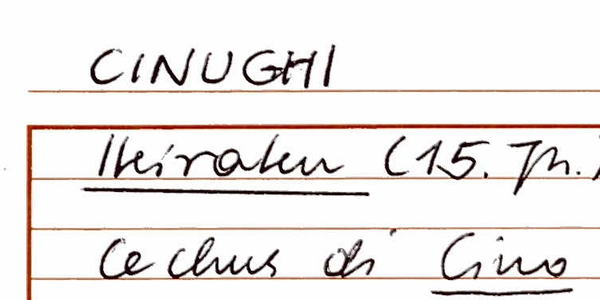 CINUGHI
Heiraten (15. Jh.)
Cechus di Cino